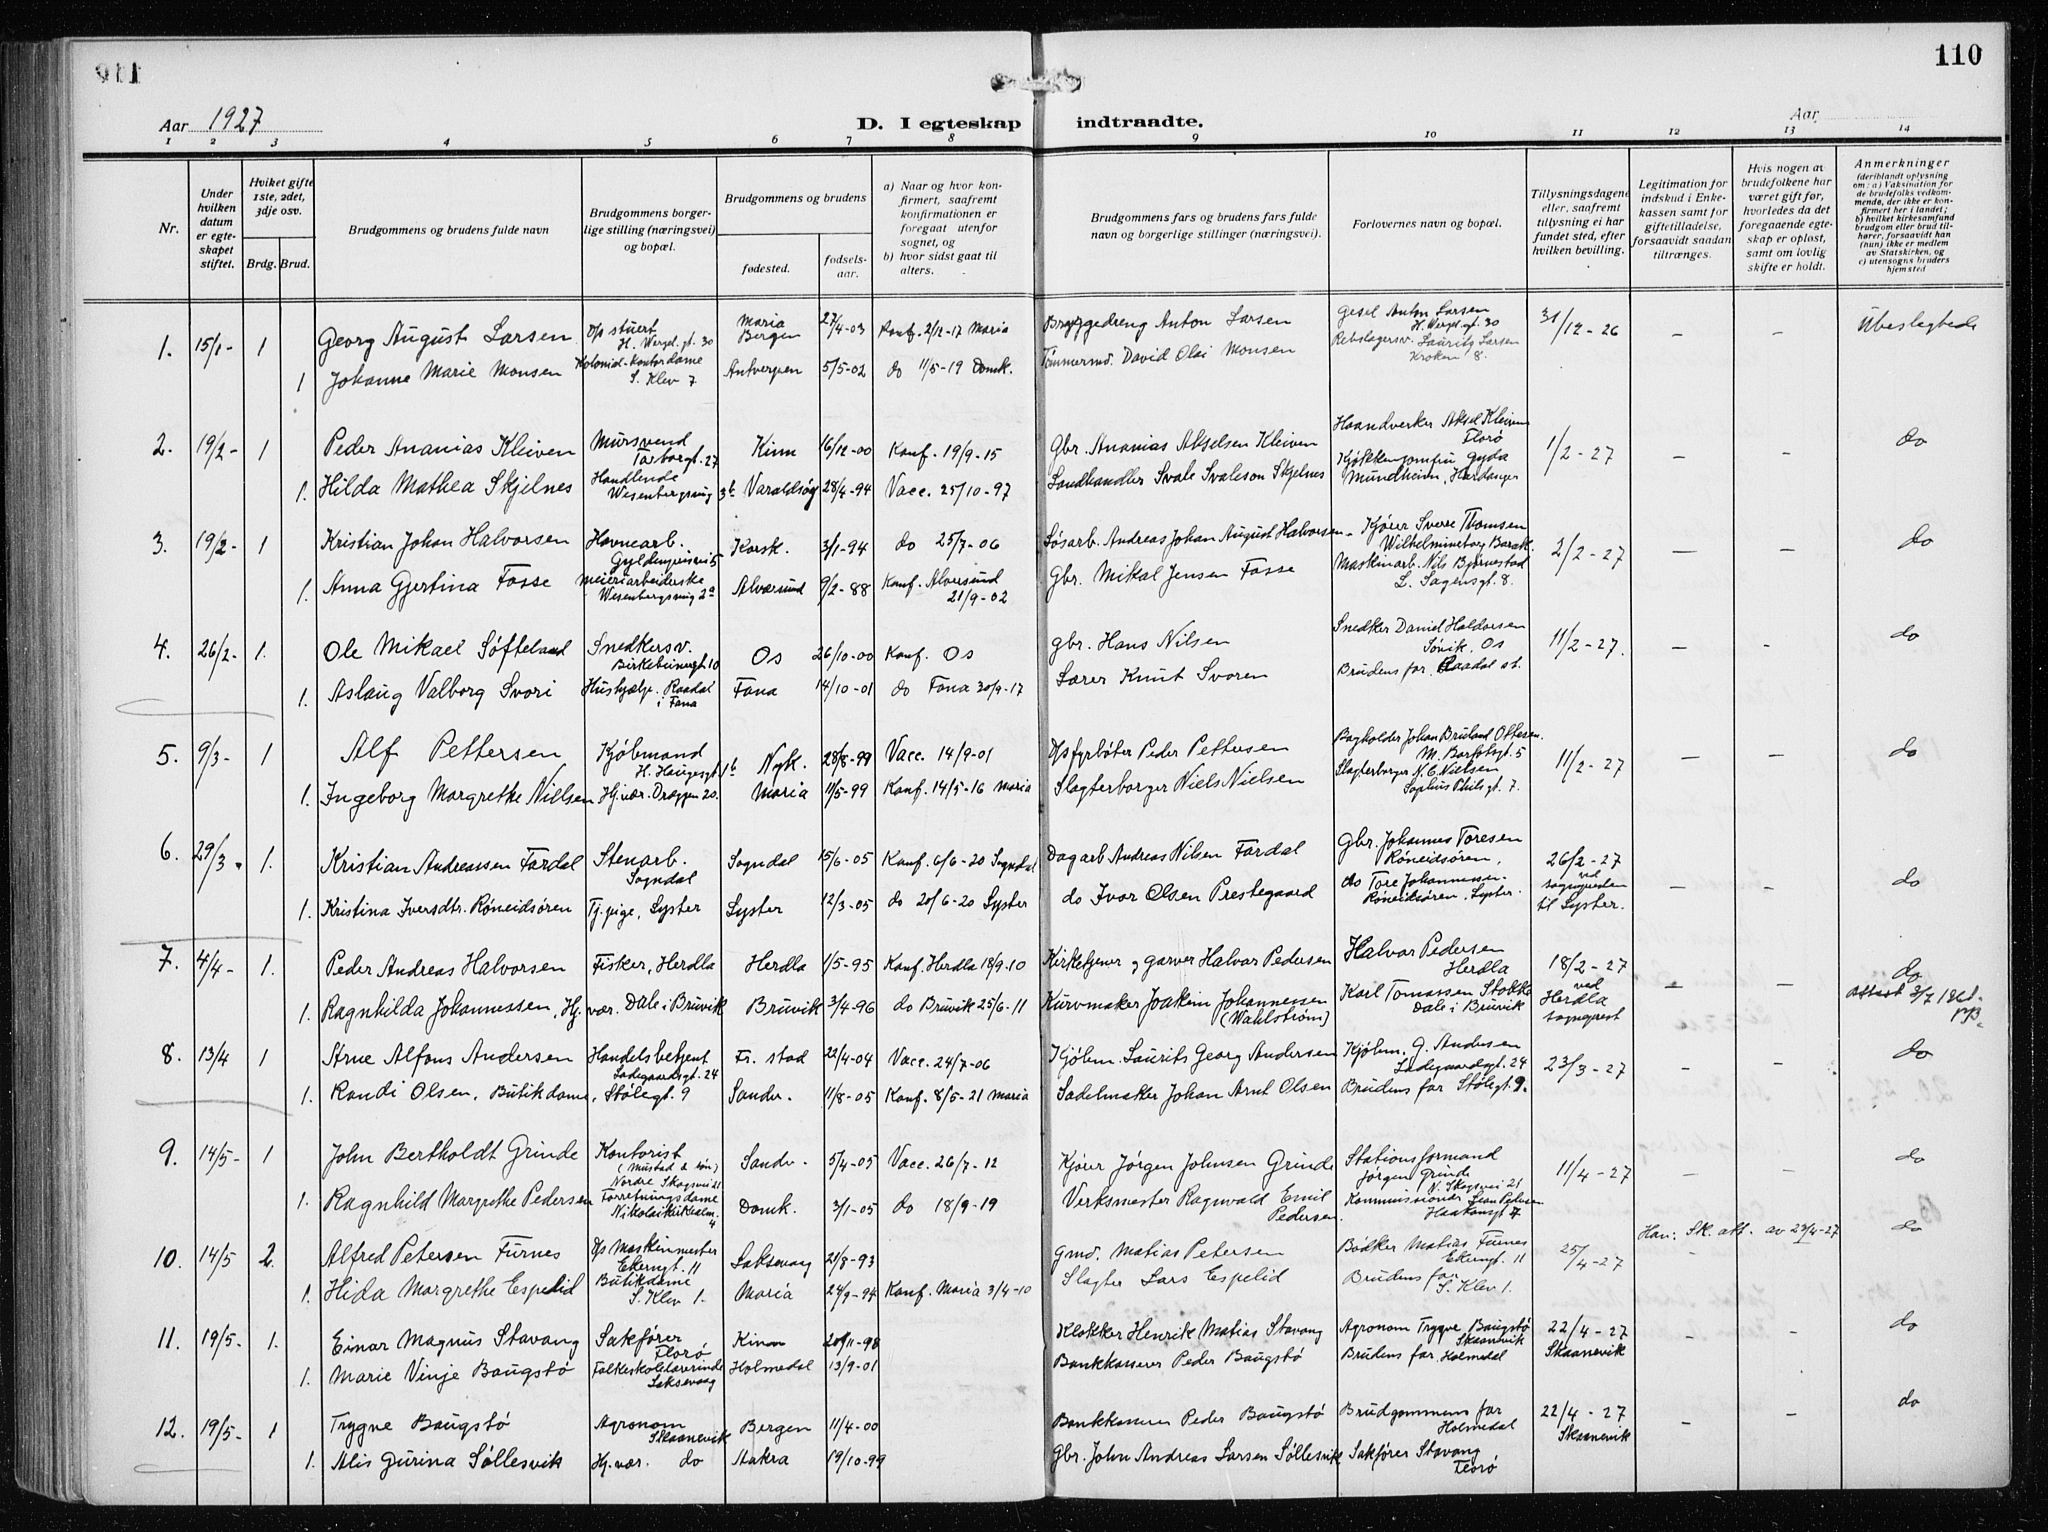 110
Aar 1927
D. I egteskap indtraadte.
Aar
1 2 3 4 5 6 7 8 9 10 11 12 13 14
Nr.
Under hvilken datum er egteskapet stiftet.
Hviket gifte 1ste, 2det, 3dje osv.
Brdg. Brud.
Brudgommens og brudens fulde navn
Brudgommens borgerlige stilling (næringsvei) og bopæl.
Brudgommens og brudens
fødested.
fødselsaar.
a) Naar og hvor konfirmert, saafremt konfirmationen er foregaat utenfor sognet, og
b) hvor sidst gaat til alters.
Brudgommens fars og brudens fars fulde navn og borgerlige stillinger (næringsvei).
Forlovernes navn og bopæl.
Tillysningsdagene eller, saafremt tillysning ei har fundet sted, efter hvilken bevilling.
Legitimation for indskud i Enkekassen samt for giftetilladelse, forsaavidt saadan tiltrænges.
Hvis nogen av brudefolkene har været gift før, hvorledes da det foregaaende egteskap er opløst, samt om lovlig skifte er holdt.
Anmerkninger (deriblandt oplysning om: a) Vaksination for de brudefolks vedkommende, der ikke er konfirmert her i landet; b) hvilket kirkesamfund brudgom eller brud tilhører, forsaavidt han (hun) ikke er medlem av Statskirken, og c) utensogns bruders hjemsted
1. 15/1- 1 Georg August Larsen D/s stuert H. Wergel. gt. 30 Maria Bergen 27/4-03 Konf. 2/12-17 Maria Bryggedreng Anton Larsen Gesel Anton Larsen H. Wergel. gt. 30 31/12-26 - - Ubeslegtede
1 Johanne Marie Monsen Kolonial-kontordame S. Klev 7 Antverpen 5/5-02 do 11/5-19 Domk. Tømmermd. David Olai Monsen Rebslagersv. Laurits Larsen Kroken 8.
2. 19/2- 1 Peder Ananias Kleiven Mursvend Torborgt. 27 Kinn 16/12-00 Konf. 19/9-15 Gbr. Ananias Akselsen Kleiven Haandverker Aksel Kleiven Florø 1/2-27 - - do
1. Hilda Mathea Skjelnes Handlende Wesenbergsmug 3b Varaldsøy 28/4-94 Vacc. 25/10-97 Landhandler Svale Svaleson Skjelnes Kjøkkenjomfru Gyda Mundheim, Hardanger
3. 19/2- 1 Kristian Johan Halvorsen Havnearb. Korsk. 3/1-94 do 25/7-06 Løsarb. Andreas Johan August Halvorsen Kjører Sverre Thomsen Wilhelmineborg Barak. 2/2-27 - - do
1. Anna Gjertina Fosse Meieriarbeiderske Wesenbergsmug 2a Alversund 9/2-88 Konf. Alversund 21/9-02 Gbr. Mikal Jensen Fosse Maskinarb. Nils Bjørnestad L. Sagensgt. 8.
4. 26/2- 1. Ole Mikael Søfteland Snedkersv. Birkebeinergt 10 Os 26/10-00 Konf. Os gbr. Hans Nilsen Snedker Daniel Haldorsen Søvik, Os 11/2-27. - - do
1. Aslaug Valborg Svori Hushjælp. Raadal i Fana Fana 14/10-01 do Fana 30/9-17 Lærer Knut Svoren Brudens far, Raadal st.
5. 9/3- 1 Alf Pettersen Kjøbmand H. Haugesgt. 1b Nyk. 28/8-99 Vacc. 14/9-01 D/s fyrbøter Peder Pettersen Bogholder Johan Bruland Ottesen. M. Barfotsgt. 5 11/2-27 - - do
1. Ingeborg Margrethe Nielsen Hj. vær. Dræggen 20. Maria 11/5-99 Konf. 14/5-16 Maria Slagterborger Niels Nielsen Slagterborger N. C. Nielsen Sophus Philsgt. 7.
6. 29/3 1. Kristian Andreassen Fardal Stenarb. Sogndal Sogndal 15/6-05 Konf. 6/6-20 Sogndal Dagarb. Andreas Nilsen Fardal Gbr. Johannes Toresen Røneidsøren, 26/2-27 ved sognepresten til Lyster. - - do
1. Kristina Iversdtr. Røneidsøren Tj. pige, Lyster Lyster 12/3-05 do 20/6-20 Lyster do Ivar Olsen Prestegaard do Tore Johannessen Røneidsøren, Lyster.
7. 4/4- 1. Peder Andreas Halvorsen Fisker, Herdla Herdla 1/5-95 Konf. Herdla 18/9-10 Kirketjener og garver Halvor Pedersen Halvor Pedersen Herdla 18/2-27 ved Herdla sogneprest - - do
1. Ragnhilda Johannessen, Hj. vær. Dale i Bruvik Bruvik 3/4-96 do Bruvik 25/6-11 Kurvmaker Joakim Johannessen (Wahlstrøm) Karl Tomassen Stokke Dale i Bruvik Attest 3/7 1961.
8. 13/4 1 Arne Alfons Andersen Handelsbetjent Ladegaardsgt. 24 Fr. stad 22/4-04 Vacc. 24/7-06 Kjøbm. Laurits Georg Andersen Kjøbm. G. Andersen Ladegaardsgt. 24 23/3-27 - - do
1. Randi Olsen, Butikdame, Stølegt. 9 Sandv. 11/8-05 Konf. 8/5-21 Maria Sadelmaker Johan Arnt Olsen Brudens far Stølegt. 9.
9. 14/5- 1 John Bertholdt Grinde Kontorist (Mustad & søn) Nordre Skogvei 21 Sandv. 5/4-05 Vacc. 26/7-12 Kjører Jørgen Johnsen Grinde Stationsformand Jørgen Grinde N. Skogvei 21 11/4-27 - - do
1. Ragnhild Margrethe Pedersen Forretningsdame Nikolaikirkealm. 4 Domk. 3/1-05 do 18/9-19 Verksmester Ragnvald Emil Pedersen. Kommissionær Leon Pedersen Haakonsgt. 7
10. 14/5 2. Alfred Petersen Furnes D/s Maskinmester Ekerngt. 11 Laksevaag 21/8-93 Gmd. Matias Petersen Bødker Matias Furnes Ekerngt. 11 25/4-27 Han: Sk. att. av 23/4-27 - do
1. Hilda Margrethe Espelid Butikdame S. Klev 1. Maria 24/9-94 Konf. Maria 3/4-10 Slagter Lars Espelid Brudens far S. Klev 1.
11. 19/5- 1. Einar Magnus Stavang Sakfører Florø Kinn 20/11-98 Klokker Henrik Matias Stavang Agronom Trygve Baugstø Skaanevik 22/4-27 Skaanevik - - do
1. Marie Vinje Baugstø Folkeskolelærerinde Laksevaag Holmedal 13/9-01 Bankkasserer Peder Baugstø Brudens far, Holmedal
12. 19/5- 1 Trygve Baugstø Agronom Skaanevik Bergen 11/4-00 Bankkasserer Peder Baugstø Brudgommens far Holmedal 22/4-27 Skaanevik - - do
1. Alis Gurina Søllesvik Hj. vær. do Aakra 19/10-99 Gbr. John Andreas Larsen Søllesvik Sakfører Stavang Florø